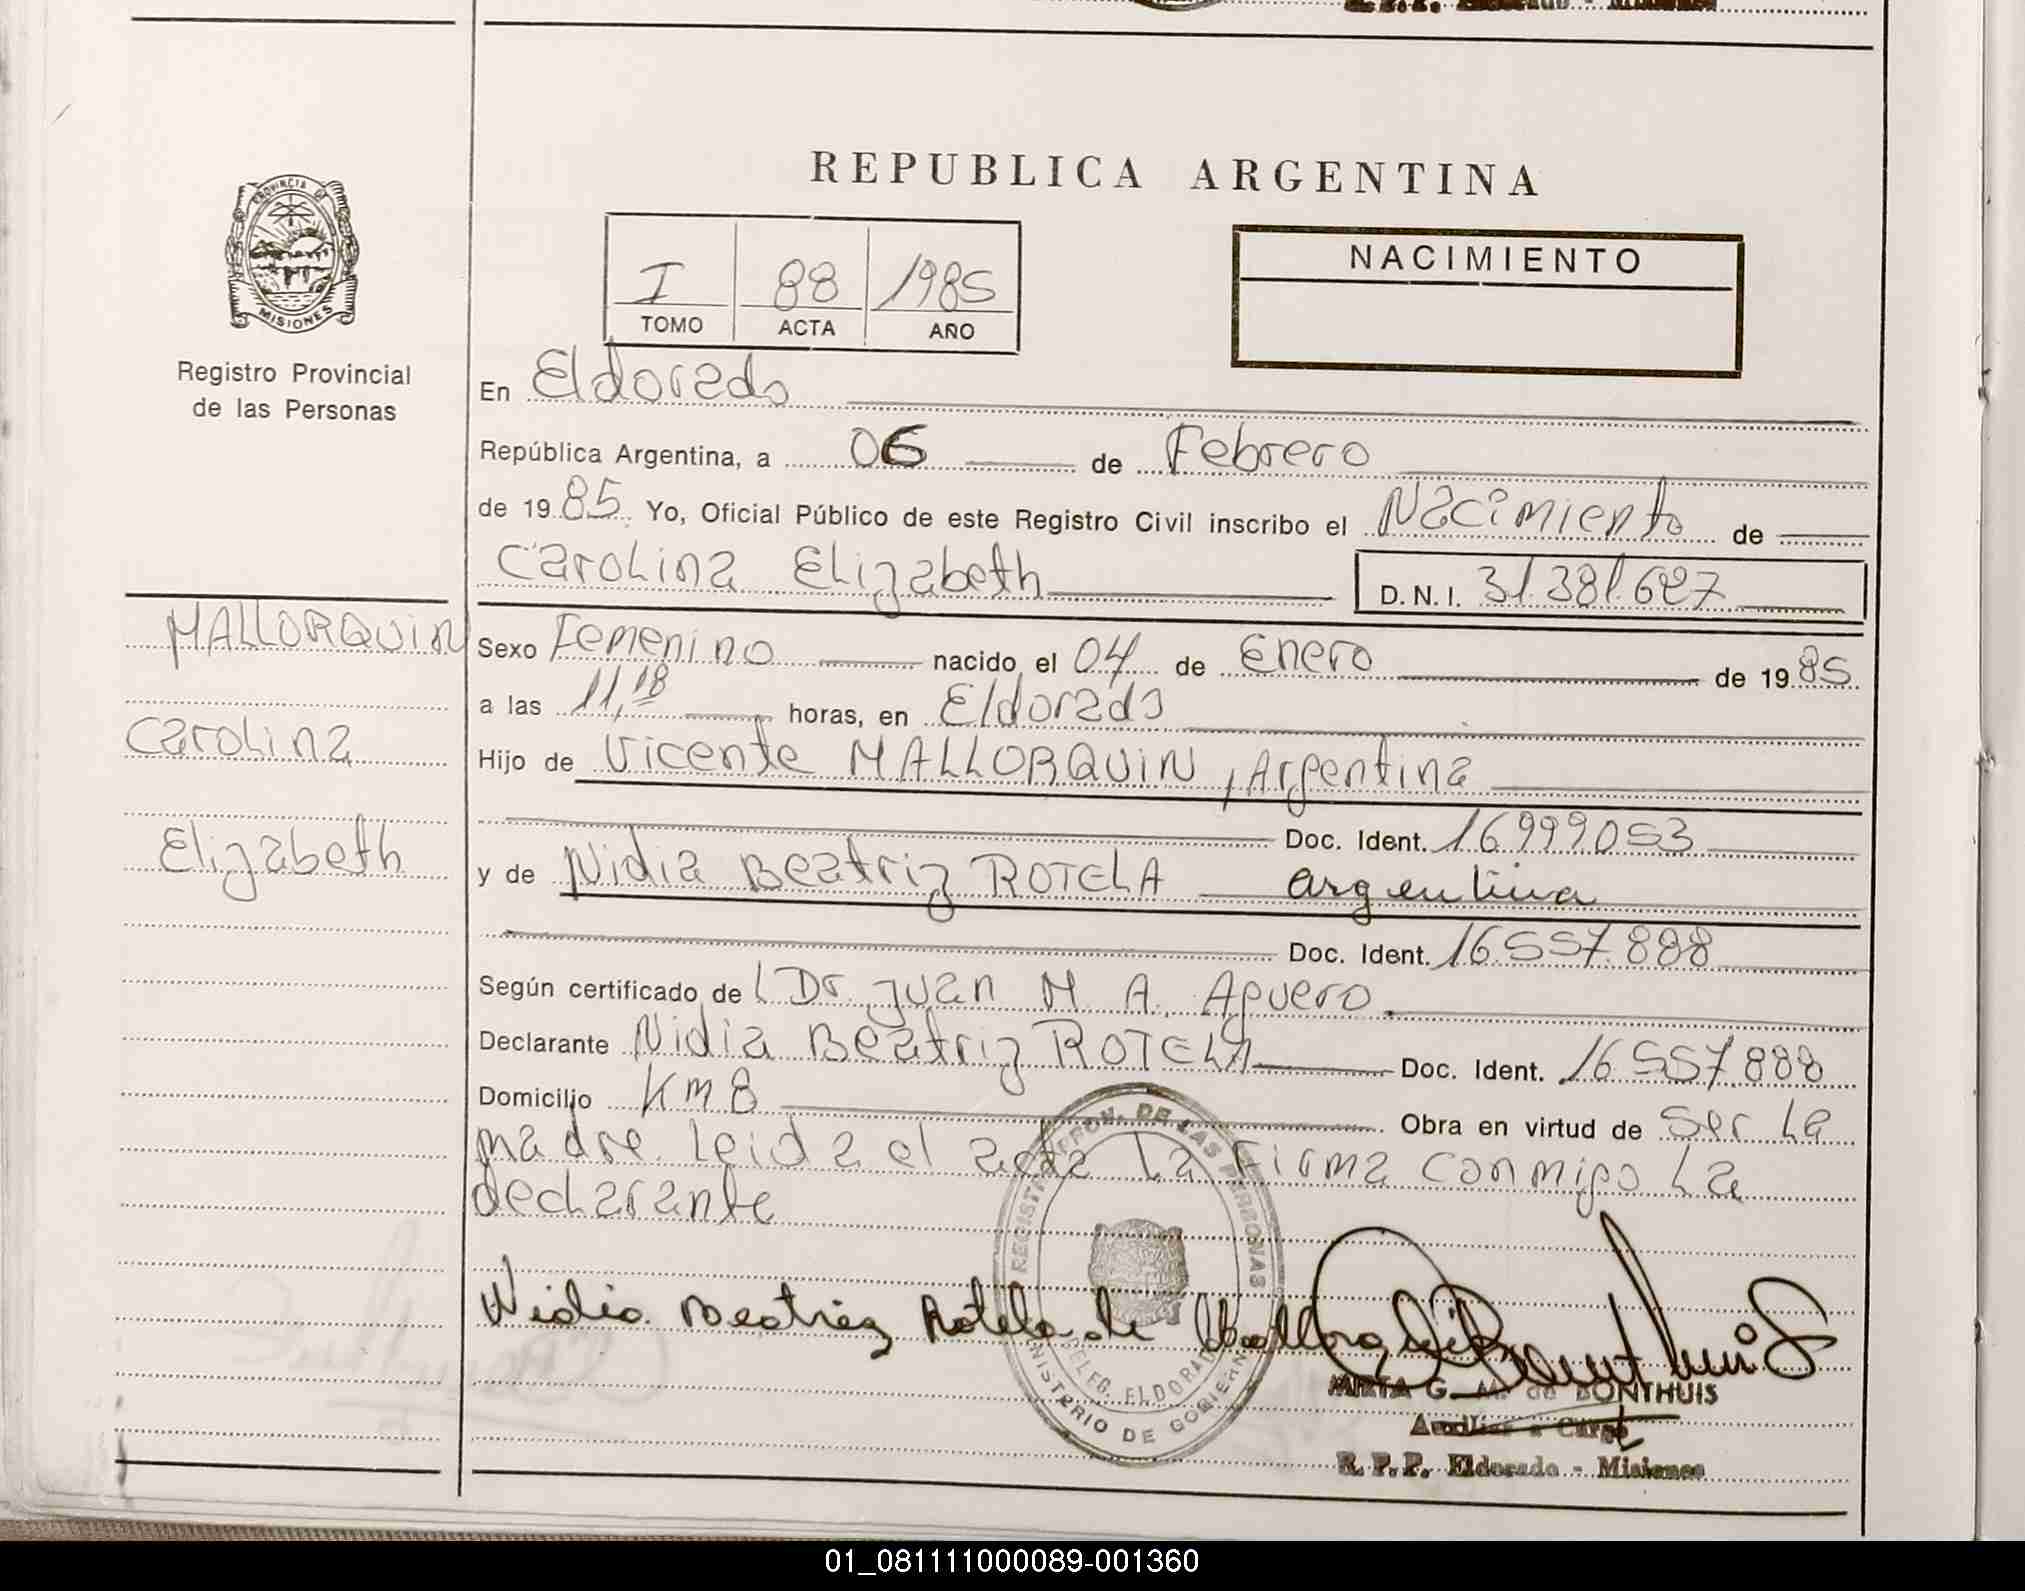 REPUBLICA ARGENTINA
PROVINCIA DE
MISIONES
Registro Provincial
de las Personas
I 88 1985
TOMO ACTA AÑO
NACIMIENTO
En Eldorado
República Argentina, a 06 de Febrero
de 1985. Yo, Oficial Público de este Registro Civil inscribo el Nacimiento de
Carolina Elizabeth D.N.I. 31.381.627
MALLORQUIN
Carolina
Elizabeth
Sexo Femenino nacido el 04 de Enero de 1985
a las 11,18 horas, en Eldorado
Hijo de Vicente MALLORQUIN, Argentina
Doc. Ident. 16.999.053
y de Nidia Beatriz ROTELA argentina
Doc. Ident. 16.557.888
Según certificado de l Dr. Juan M. A. Aguero.
Declarante Nidia Beatriz ROTELA Doc. Ident. 16.557.888
Domicilio Km 8 Obra en virtud de ser la
madre. Leida el acta la firma conmigo la
declarante
REGISTRO PROV. DE LAS PERSONAS
DELEG. ELDORADO
MINISTERIO DE GOBIERNO
Nidia Beatriz Rotela de
MIRTA G. M. de BONTHUIS
Auxiliar a Cargo
R.P.P. Eldorado - Misiones
01_081111000089-001360